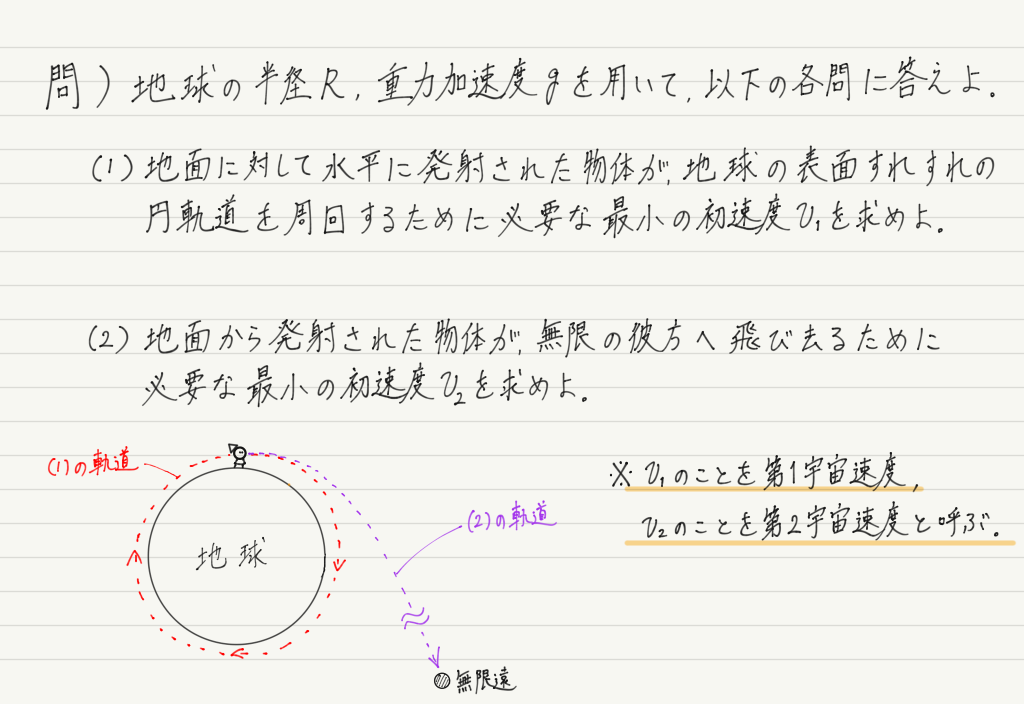 問）地球の半径R，重力加速度gを用いて，以下の各問に答えよ．
(1) 地面に対して水平に発射された物体が，地球の表面すれすれの
円軌道を周回するために必要な最小の初速度v₁を求めよ．
(2) 地面から発射された物体が，無限の彼方へ飛び去るために
必要な最小の初速度v₂を求めよ．
(1)の軌道
地球
(2)の軌道
無限遠
※ v₁のことを第1宇宙速度，
v₂のことを第2宇宙速度と呼ぶ．